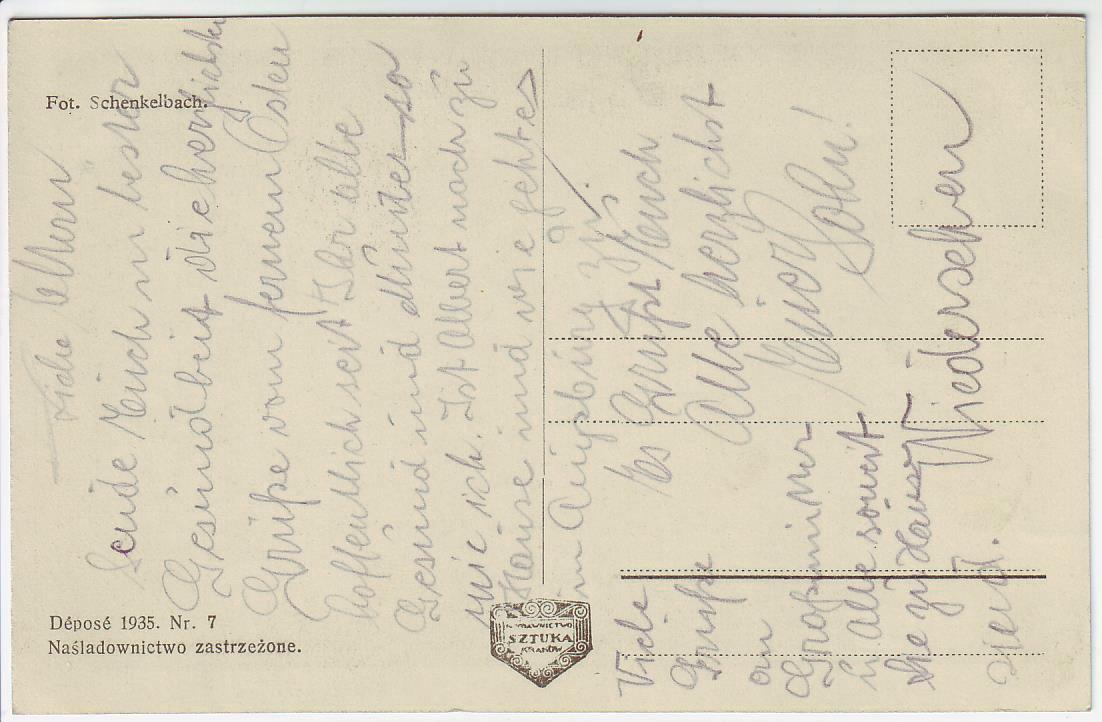 Fot. Schenkelbach.
Liebe Eltern
Sende Euch in bester
Gesundheit die herzlichsten
Grüße vom fernen Osten
hoffentlich seit Ihr alle
Gesund und Munter so
wie ich. Ist Albert noch zu
Hause und wie geht es
in Augsburg zu.
Es Grüßt Euch
Alle herzlichst
Euer
Sohn!
Viele
Grüße
an
Großmutter
u. Alle soweit
Sie zu Hause
sind.
Wiedersehen
Déposé 1935. Nr. 7
Naśladownictwo zastrzeżone.
WYDAWNICTWO
SZTUKA
KRAKÓW